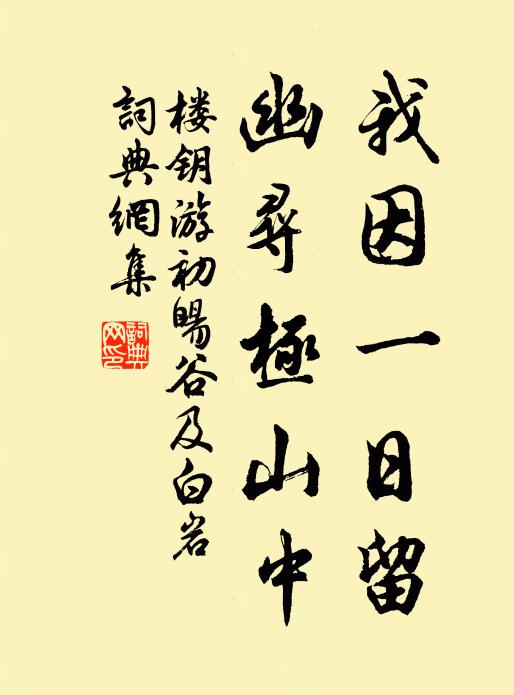 我因一日留
幽尋極山中
楼钥游初暘谷及白岩
詞典網集
詞典網印